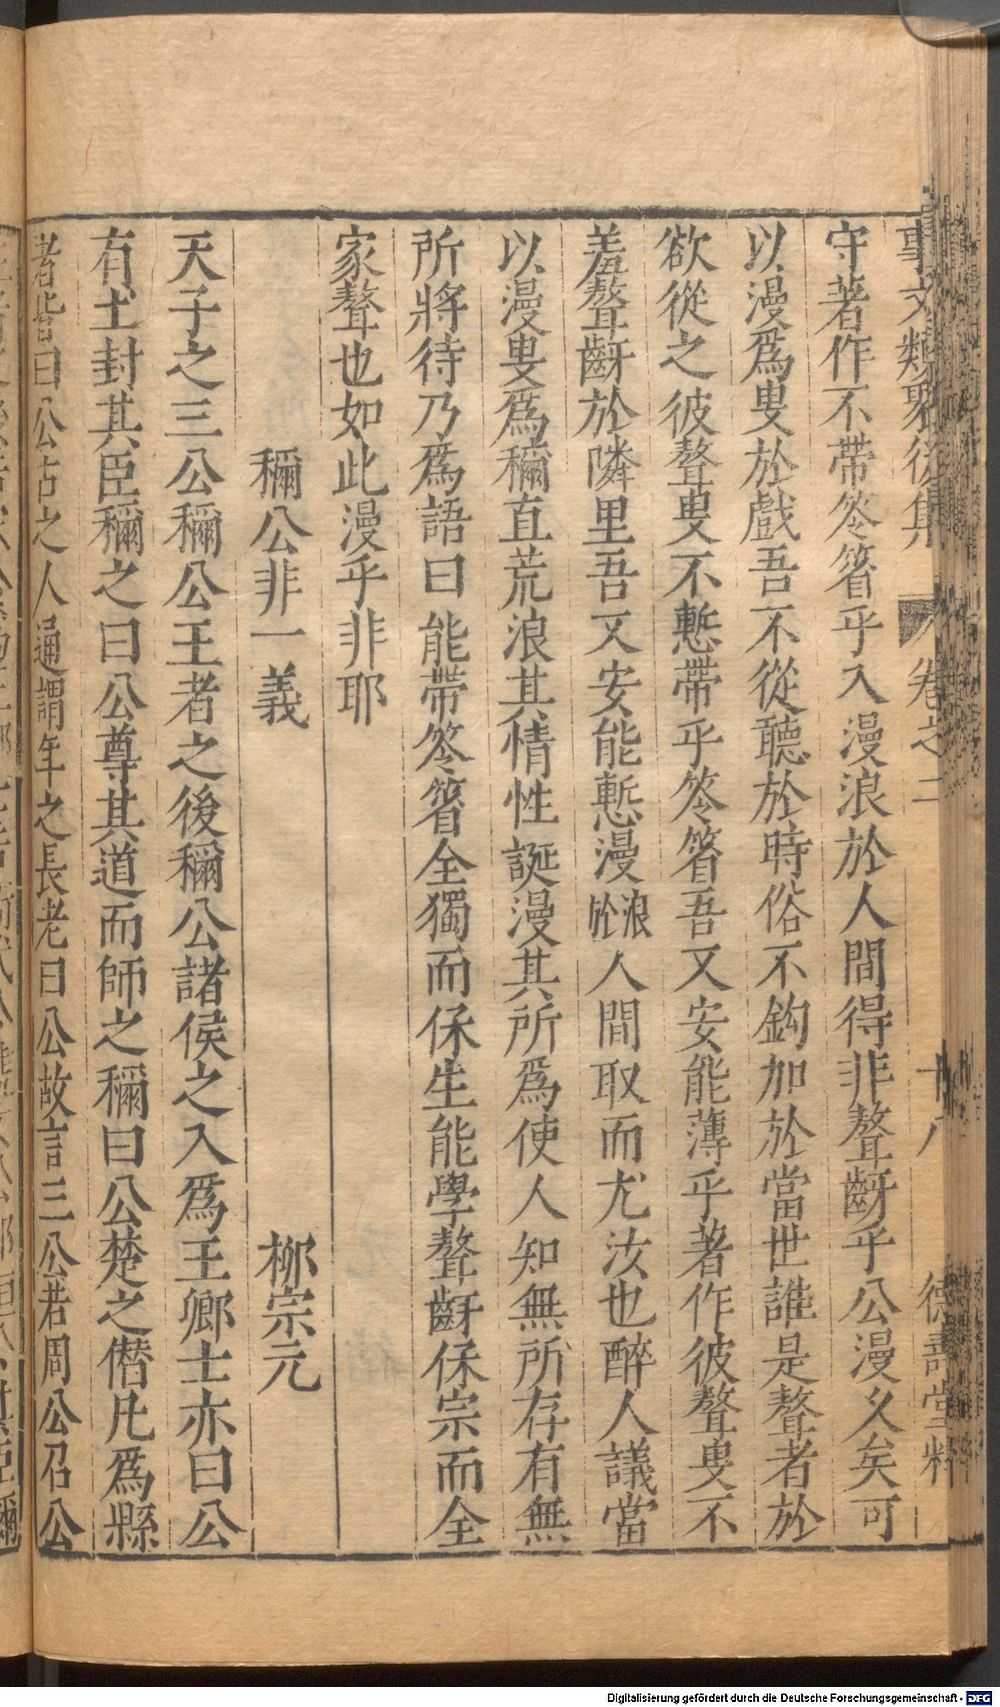 事文類聚後集 卷之二 十八 德壽堂梓
守著作不帶笭箵乎入漫浪於人間得非聱齖乎公漫久矣可
以漫爲叟於戲吾不從聽於時俗不鈎加於當世誰是聱者於
欲從之彼聱叟不慙帶乎笭箵吾又安能薄乎著作彼聱叟不
羞聱齖於隣里吾又安能慙漫浪於人間取而尤汝也醉人議當
以漫叟爲稱直荒浪其情性誕漫其所爲使人知無所存有無
所將待乃爲語曰能帶笭箵全獨而保生能學聱齖保宗而全
家聱也如此漫乎非耶
稱公非一義 柳宗元
天子之三公稱公王者之後稱公諸侯之入爲王卿士亦曰公
有土封其臣稱之曰公尊其道而師之稱曰公楚之僭凡爲縣
者皆曰公古之人通謂年之長老曰公故言三公若周公召公
Digitalisierung gefördert durch die Deutsche Forschungsgemeinschaft - DFG